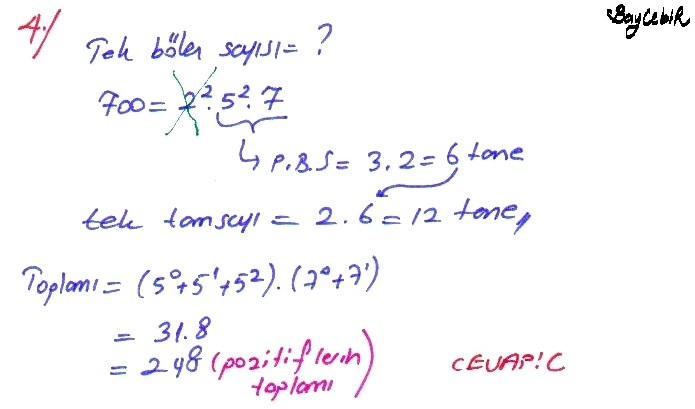 BayCebiR
4./
Tek böler sayısı = ?
700 = 2². 5². 7
↳ P.B.S = 3.2 = 6 tane
tek tamsayı = 2.6 = 12 tane,,
Toplamı = (5⁰+5¹+5²). (7⁰+7¹)
= 31.8
= 248 (pozitiflerin
toplamı)
CEVAP: C